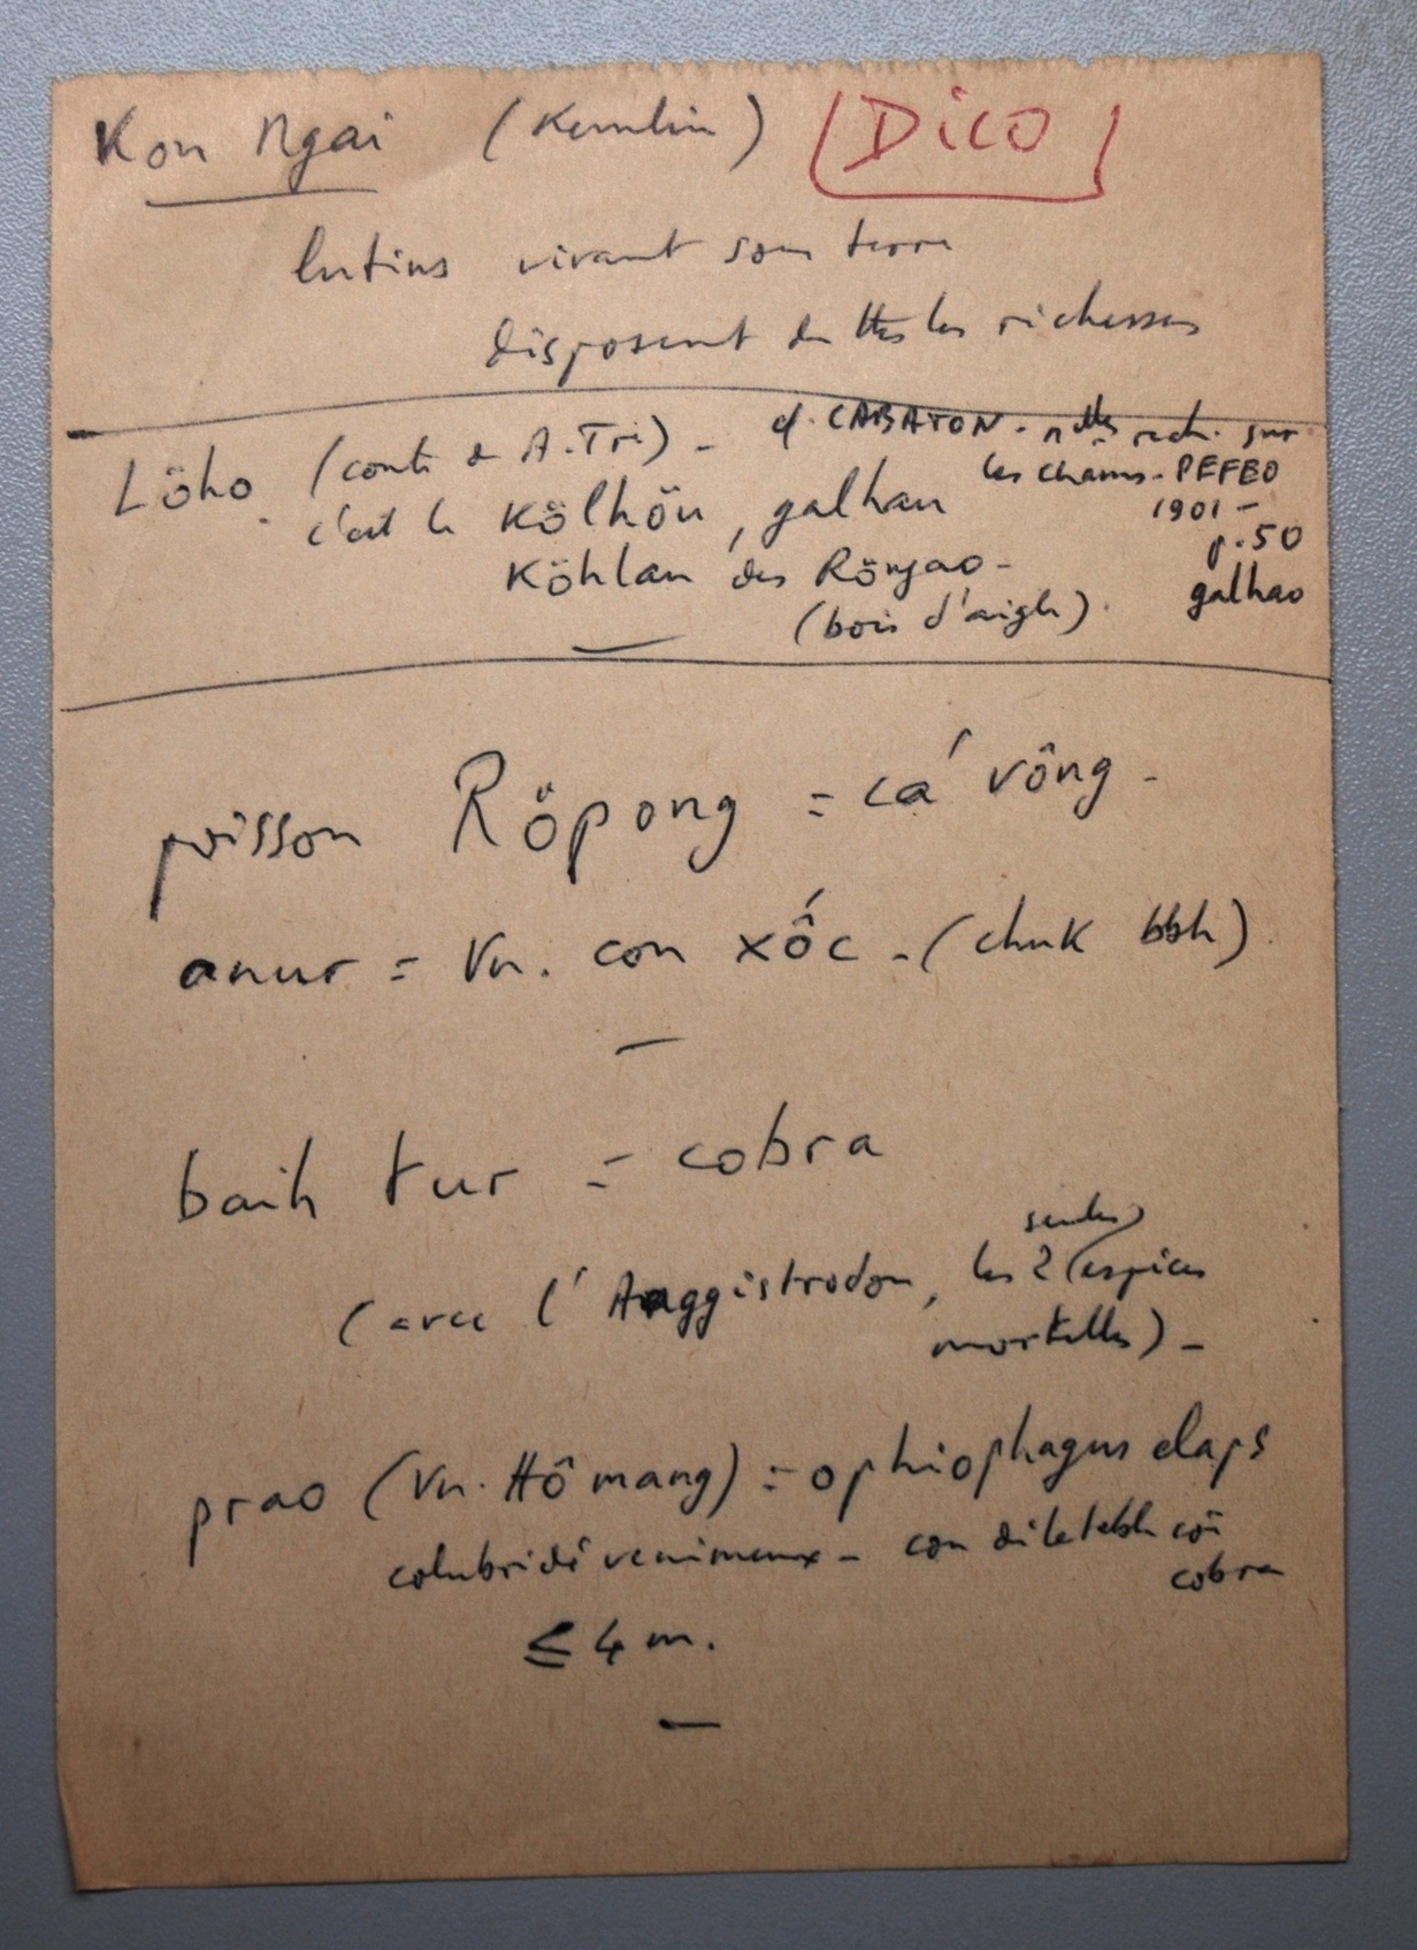 Kon Ngai (Kemlin) [DICO]
lutins vivant sous terre
disposent de ttes les richesses
Löho. (conte de A. Tri) - cf. CABATON - nlles rech. sur
les chams - PEFEO
1901 -
p. 50
galhao
c'est le Kölhön, galhan
Köhlan des Röngao -
(bois d'aigle).
poisson Röpong = cá vông -
anur = Vn. con xốc - (chuk bbh)
baih tur = cobra
seules
(avec l'Anggistrodon, les 2 espèces
mortelles) -
prao (Vn. Hô mang) = ophiophagus elaps
colubridé venimeux - cou dilatable cō
cobra
≤ 4 m.